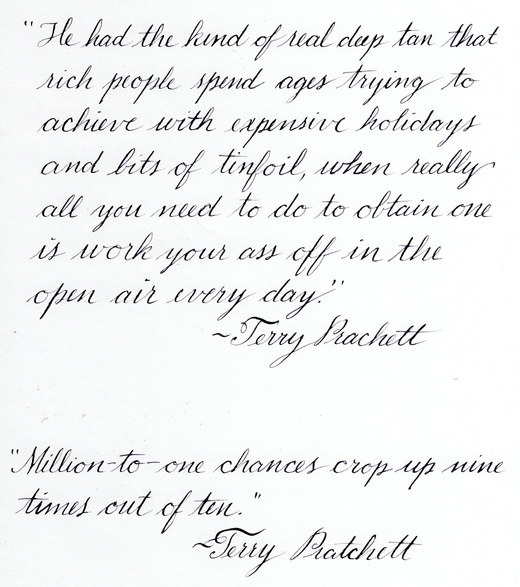 "He had the kind of real deep tan that
rich people spend ages trying to
achieve with expensive holidays
and bits of tinfoil, when really
all you need to do to obtain one
is work your ass off in the
open air every day."
~Terry Prachett
"Million-to-one chances crop up nine
times out of ten."
~Terry Pratchett